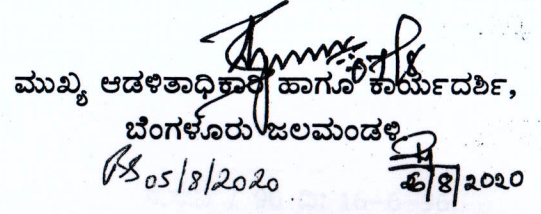 ಮುಖ್ಯ ಆಡಳಿತಾಧಿಕಾರಿ ಹಾಗೂ ಕಾರ್ಯದರ್ಶಿ,
ಬೆಂಗಳೂರು ಜಲಮಂಡಳಿ
05/8/2020 6/8/2020